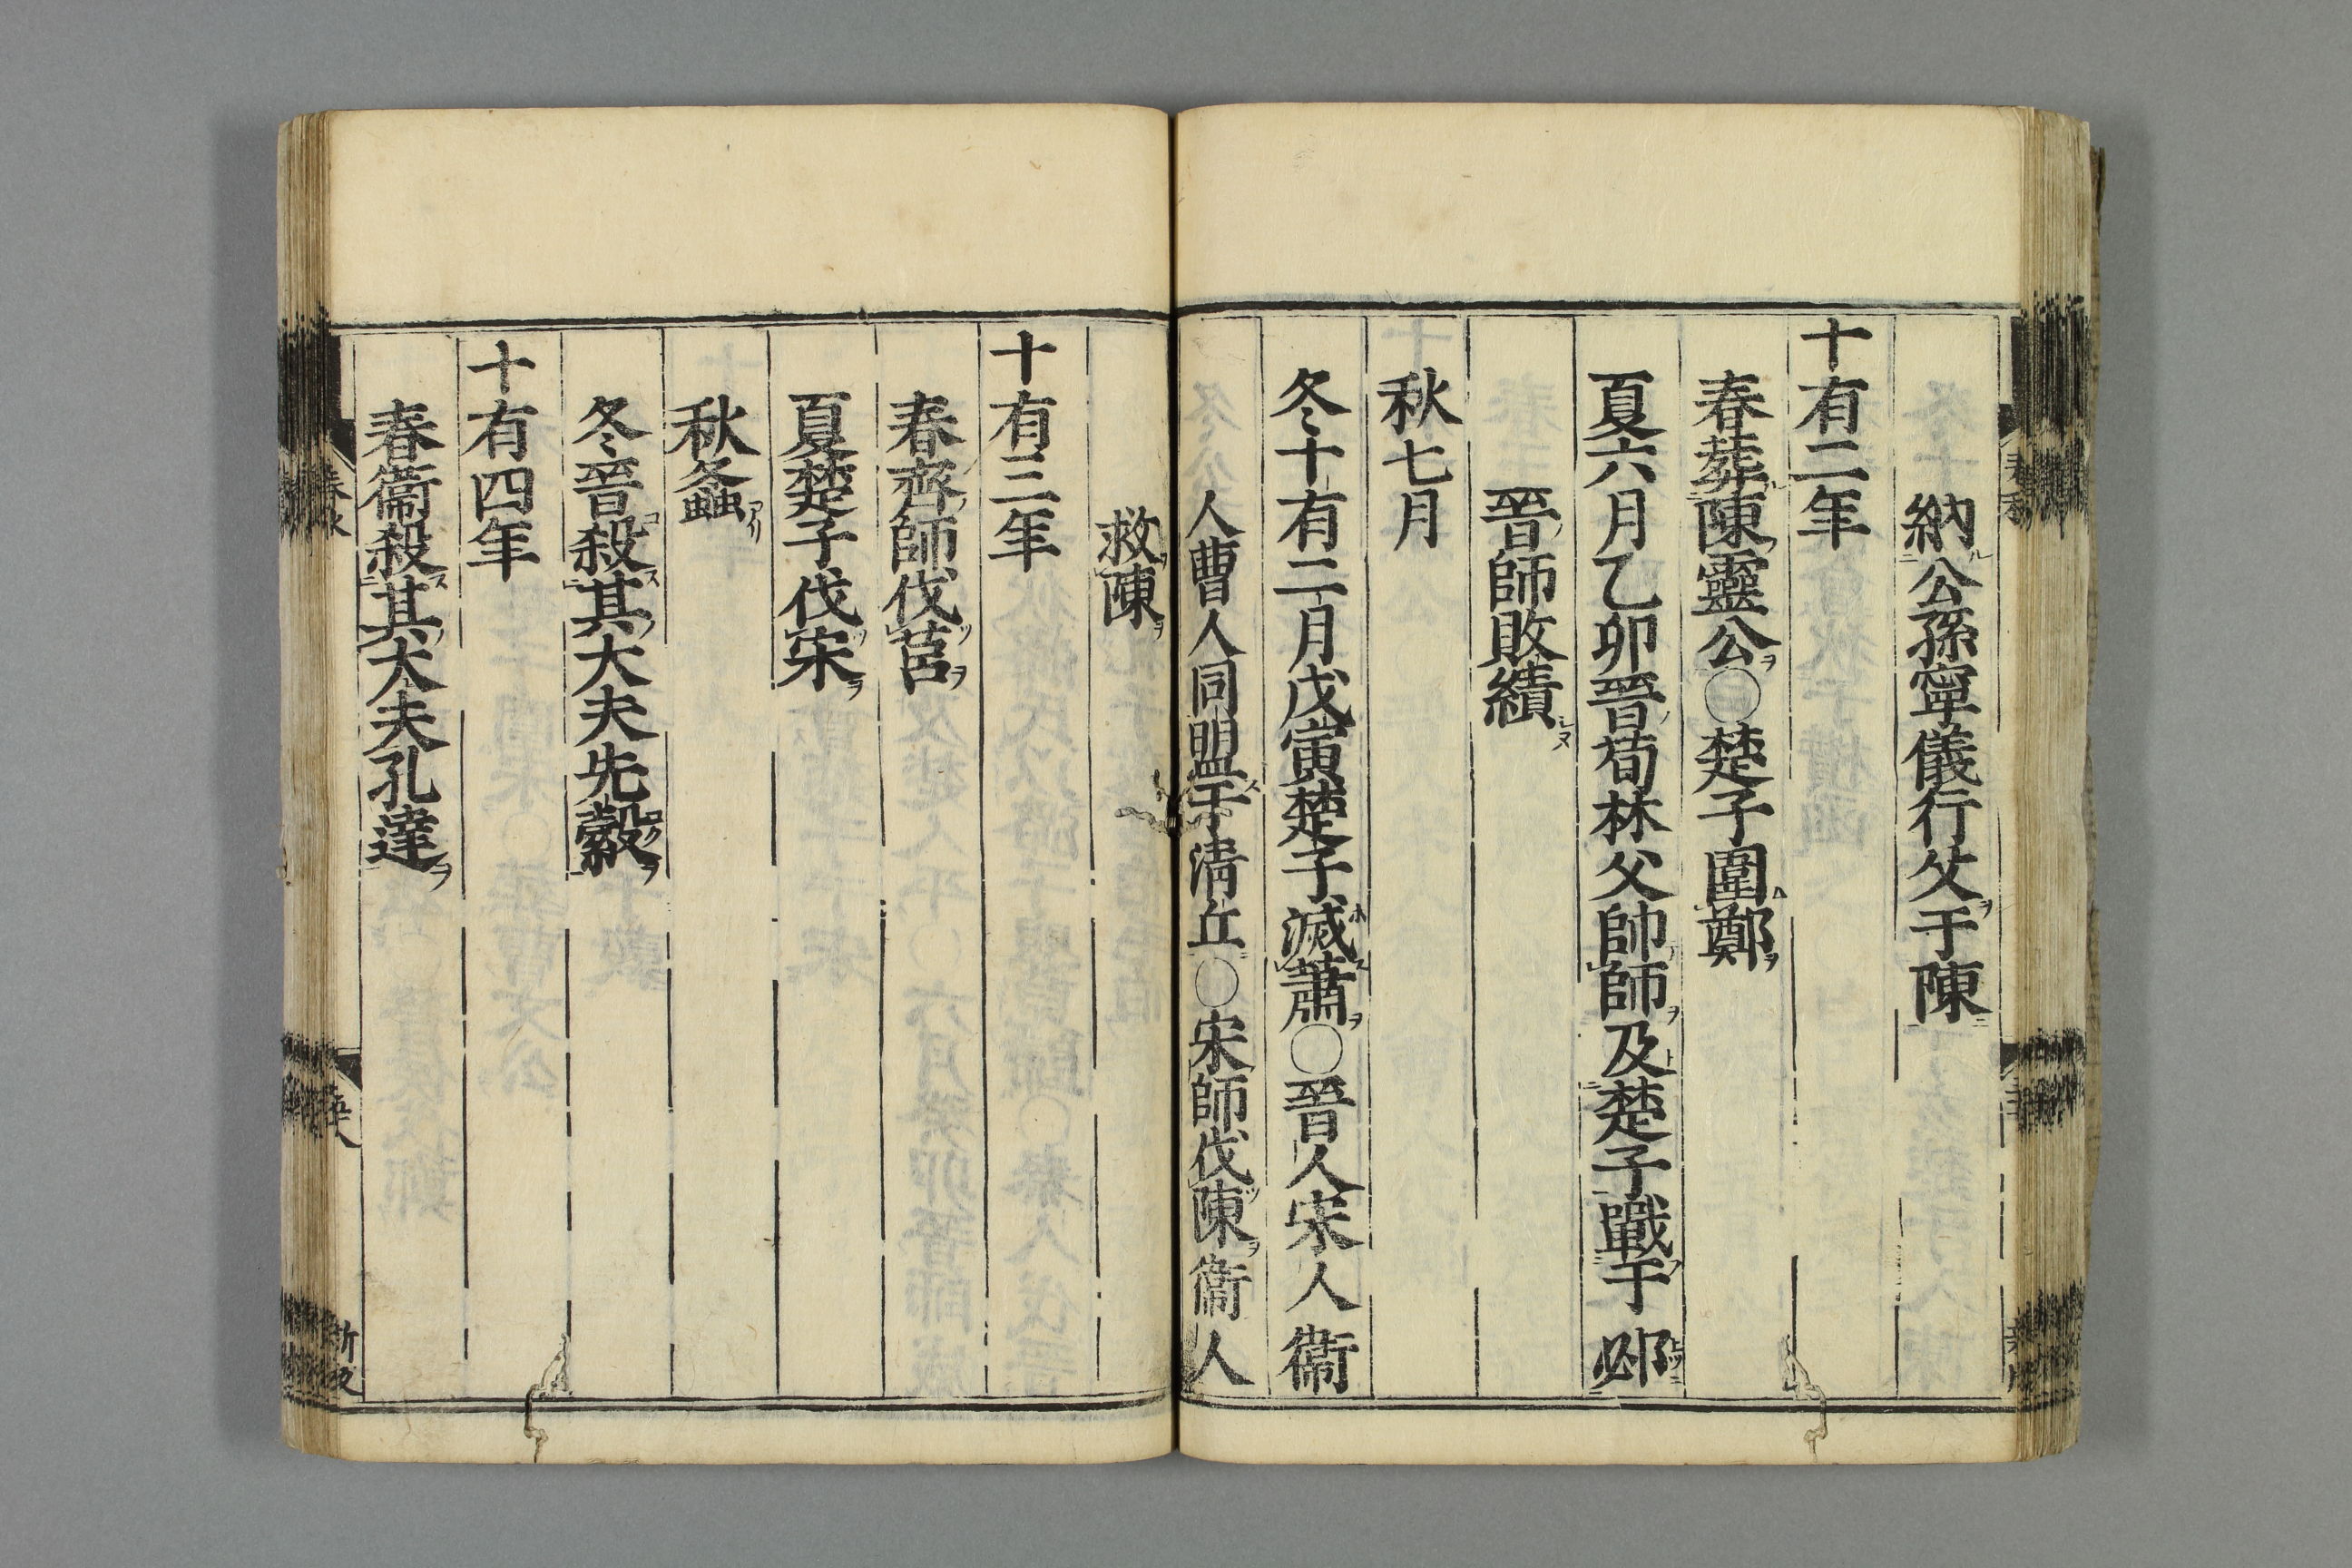 納公孫寧儀行父于陳
十有二年
春葬陳靈公〇楚子圍鄭
夏六月乙卯晉荀林父帥師及楚子戰于邲
晉師敗績
秋七月
冬十有二月戊寅楚子滅蕭〇晉人宋人衞
人曹人同盟于清丘〇宋師伐陳衞人
救陳
十有三年
春齊師伐莒
夏楚子伐宋
秋螽
冬晉殺其大夫先縠
十有四年
春衞殺其大夫孔達